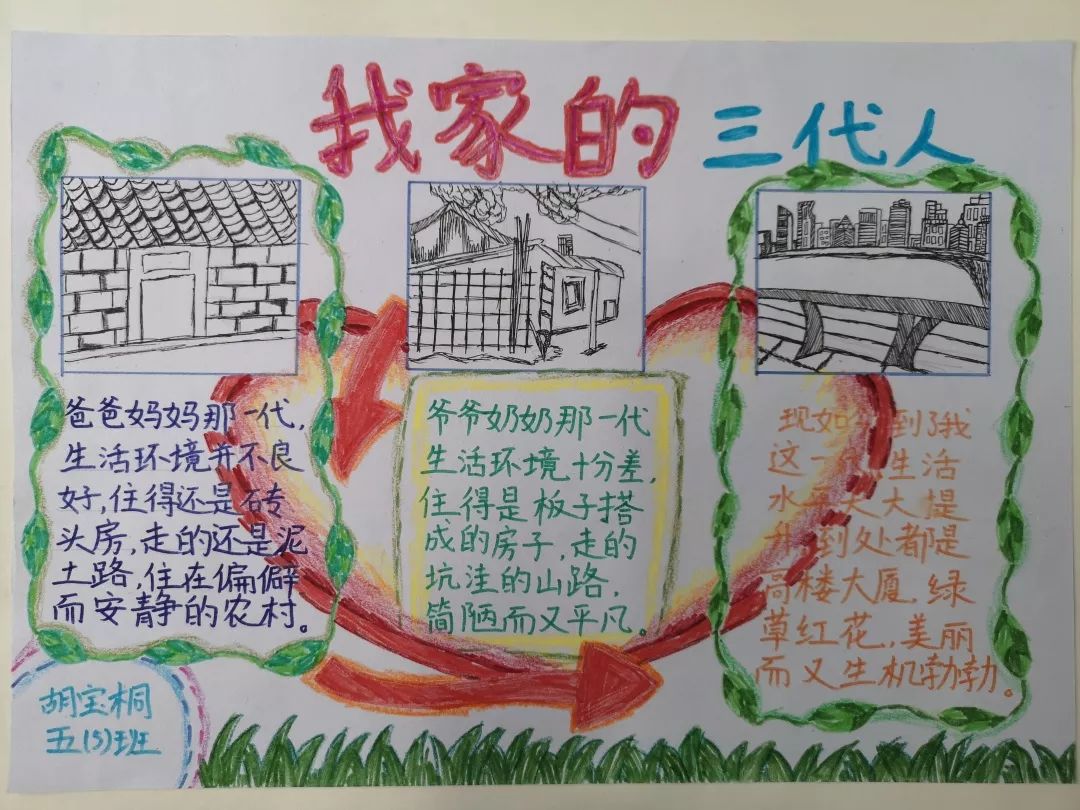 我家的三代人
爸爸妈妈那一代,
生活环境并不良
好,住得还是砖
头房,走的还是泥
土路,住在偏僻
而安静的农村。
爷爷奶奶那一代
生活环境十分差,
住得是板子搭
成的房子,走的
坑洼的山路,
简陋而又平凡。
现如今到了我
这一代,生活
水平大大提
升,到处都是
高楼大厦,绿
草红花,美丽
而又生机勃勃。
胡宝桐
五(5)班